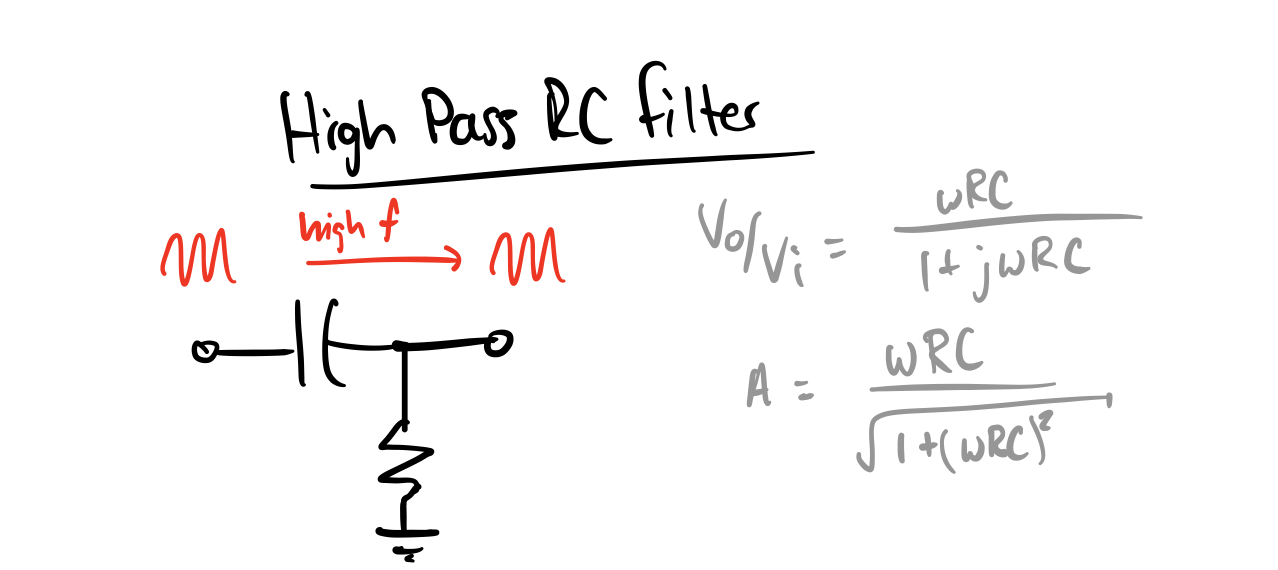 High Pass RC filter
high f
Vo/Vi = wRC / 1 + jwRC
A = wRC / √1+(wRC)²